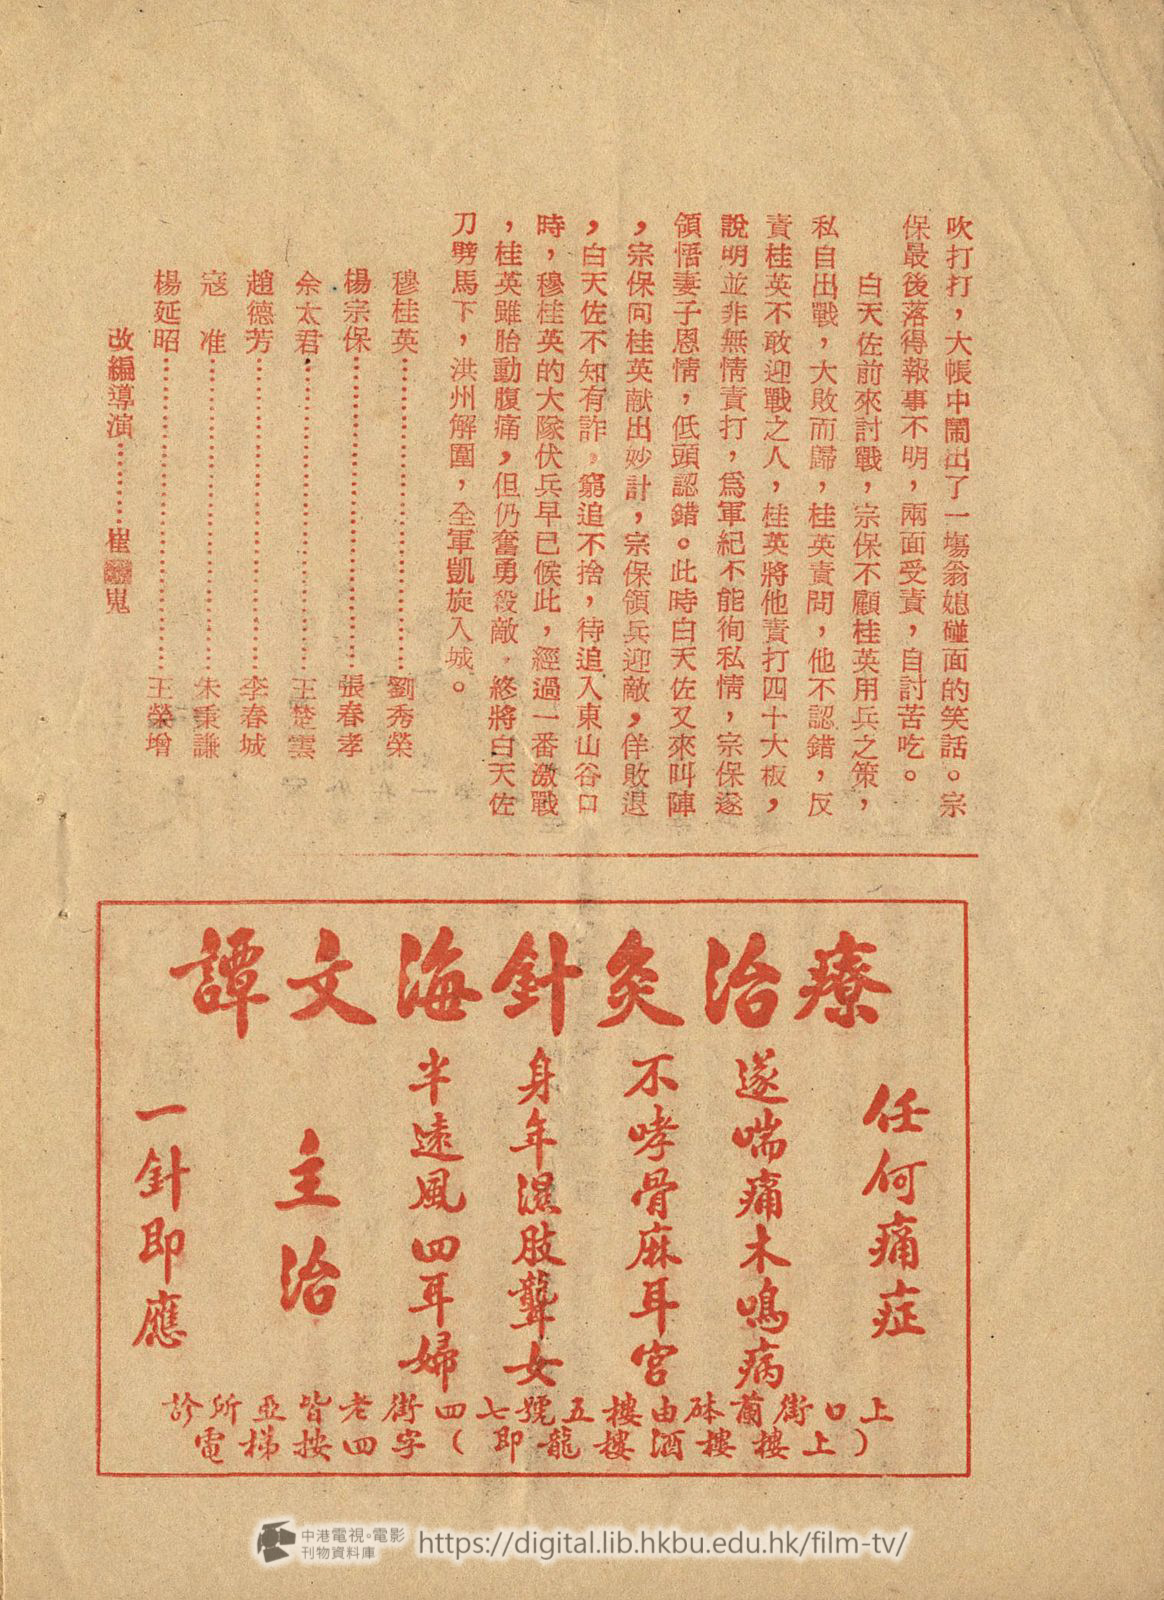 吹打打，大帳中鬧出了一塲翁媳碰面的笑話。宗
保最後落得報事不明，兩面受責，自討苦吃。
白天佐前來討戰，宗保不顧桂英用兵之策，
私自出戰，大敗而歸，桂英責問，他不認錯，反
責桂英不敢迎戰之人，桂英將他責打四十大板，
說明並非無情責打，爲軍紀不能徇私情，宗保遂
領悟妻子恩情，低頭認錯。此時白天佐又來叫陣
，宗保向桂英献出妙計，宗保領兵迎敵，佯敗退
，白天佐不知有詐。窮追不捨，待追入東山谷口
時，穆桂英的大隊伏兵早已候此，經過一番激戰
，桂英雖胎動腹痛，但仍奮勇殺敵，終將白天佐
刀劈馬下，洪州解圍，全軍凱旋入城。
穆桂英…………劉秀榮
楊宗保…………張春孝
佘太君…………王楚雲
趙德芳…………李春城
寇　准…………朱秉謙
楊延昭…………王榮增
改編導演…………崔嵬
譚文海針灸治療
任何痛症
遂喘痛木鳴病
不哮骨麻耳宮
身年濕肢聾女
半遠風四耳婦
主治
一針即應
診所亞皆老街四七號五樓由砵蘭街口上
電梯按四字（即龍樓酒樓樓上）
中港電視。電影
刊物資料庫
https://digital.lib.hkbu.edu.hk/film-tv/